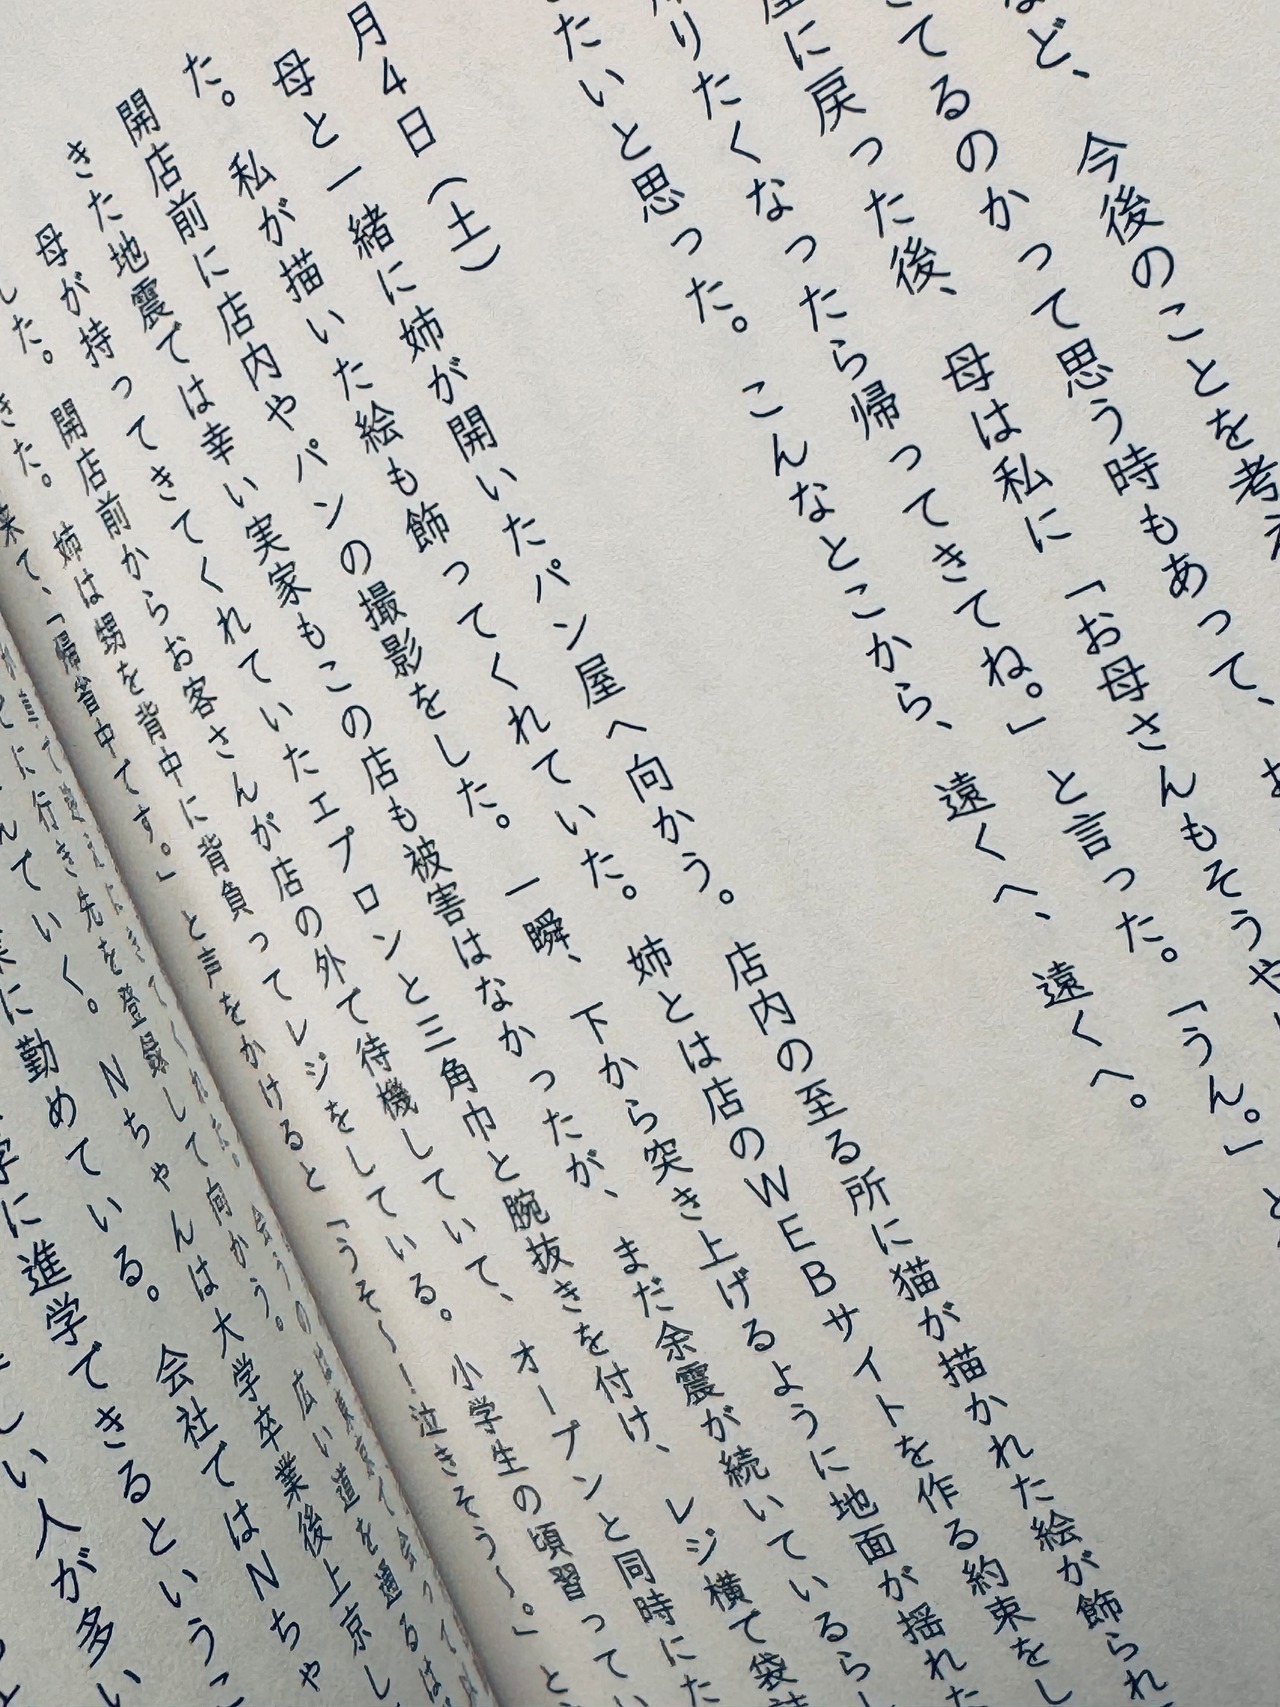 ど、今後のことを考え
てるのかって思う時もあって、
に戻った後、母は私に「お母さんもそうや
りたくなったら帰ってきてね。」と言った。「うん。」と
たいと思った。こんなとこから、遠くへ、遠くへ。
月4日(土)
母と一緒に姉が開いたパン屋へ向かう。店内の至る所に猫が描かれた絵が飾られ
た。私が描いた絵も飾ってくれていた。姉とは店のWEBサイトを作る約束をし
開店前に店内やパンの撮影をした。一瞬、下から突き上げるように地面が揺れた
きた地震では幸い実家もこの店も被害はなかったが、まだ余震が続いているらし
母が持ってきてくれていたエプロンと三角巾と腕抜きを付け、レジ横で袋
した。開店前からお客さんが店の外で待機していて、オープンと同時にた
きた。姉は甥を背中に背負ってレジをしている。小学生の頃習ってい
来て、「帰省中です。」と声をかけると「うそ〜！泣きそう〜。」と
に行き先を登録して向かう。広い道を通るは
んでいく。Nちゃんは大学卒業後上京し
に勤めている。会社ではNちゃ
学に進学できるというこ
しい人が多い